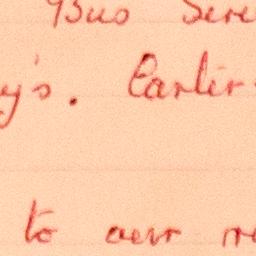 Bus Ser
y's. Earlier
to our